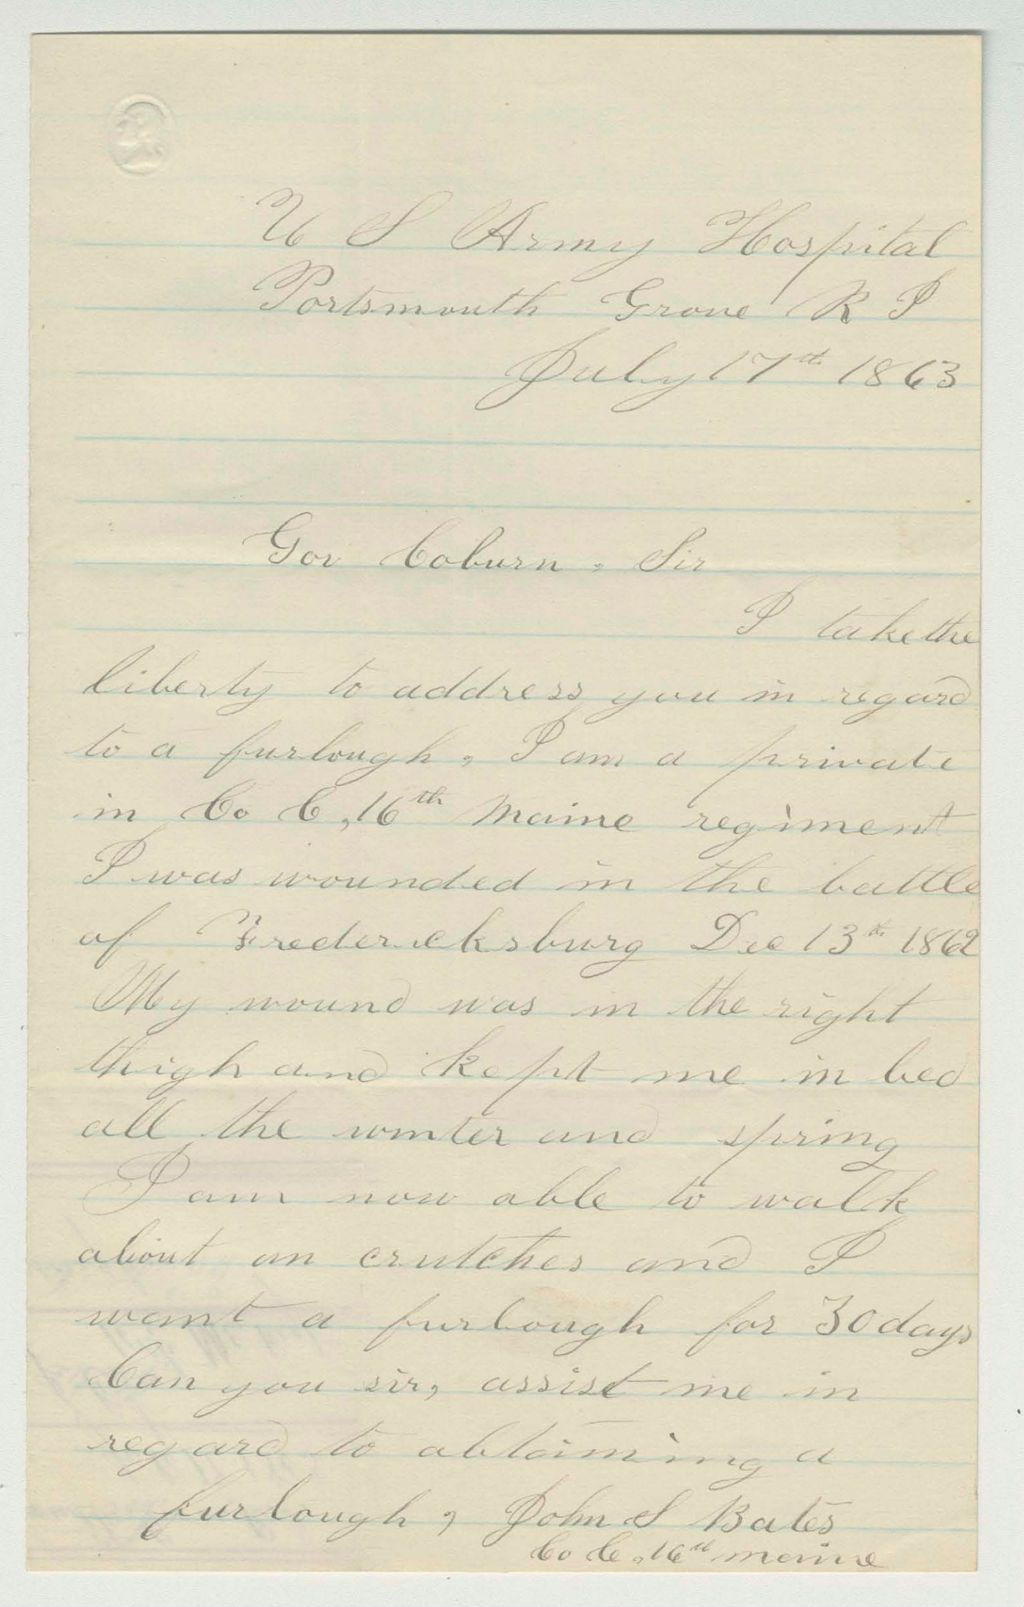 U S Army Hospital
Portsmouth Grove R I
July 17th 1863
Gov Coburn, Sir
I take the
liberty to address you in regard
to a furlough, I am a private
in Co C, 16th Maine regiment
I was wounded in the battle
of Fredericksburg Dec 13th 1862
My wound was in the right
thigh and kept me in bed
all the winter and spring
I am now able to walk
about on crutches and I
want a furlough for 30 days
Can you sir, assist me in
regard to obtaining a
furlough, John S Bates
Co C, 16th maine